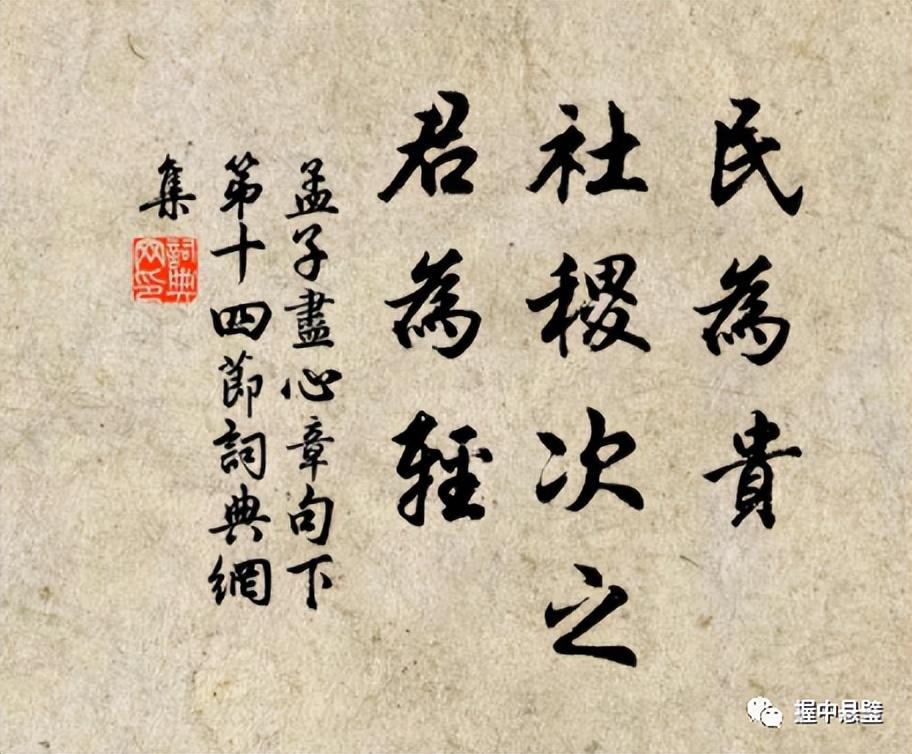 民為貴
社稷次之
君為輕
孟子盡心章句下
第十四節詞典網
集
詞典網印
握中悬鑒